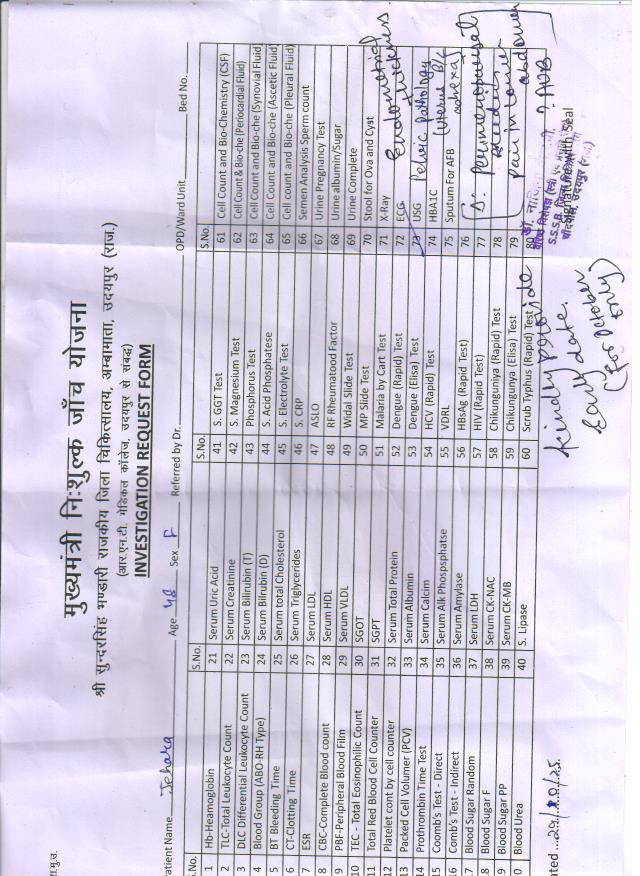 मुख्यमंत्री निःशुल्क जाँच योजना
श्री सुन्दरसिंह भण्डारी राजकीय जिला चिकित्सालय, अम्बामाता, उदयपुर (राज.)
(आर.एन.टी. मेडिकल कॉलेज, उदयपुर से संबद्ध)
INVESTIGATION REQUEST FORM
atient Name Age 48 Sex F Referred by Dr. OPD/Ward Unit Bed No.
.No. S.No. S.No. S.No.
1 Hb-Heamoglobin 21 Serum Uric Acid 41 S. GGT Test 61 Cell Count and Bio-Chemistry (CSF)
2 TLC-Total Leukocyte Count 22 Serum Creatinine 42 S. Magnesium Test 62 Cell Count & Bio-che (Periocardial Fluid)
3 DLC Differential Leukocyte Count 23 Serum Bilirubin (T) 43 Phosphorus Test 63 Cell Count and Bio-che (Synovial Fluid)
4 Blood Group (ABO-RH Type) 24 Serum Bilrubin (D) 44 S. Acid Phosphatese 64 Cell Count and Bio-che (Ascetic Fluid)
5 BT Bleeding Time 25 Serum total Cholesterol 45 S. Electrolyte Test 65 Cell count and Bio-che (Pleural Fluid)
6 CT-Clotting Time 26 Serum Triglycerides 46 S. CRP 66 Semen Analysis Sperm count
7 ESR 27 Serum LDL 47 ASLO 67 Urine Pregnancy Test
8 CBC-Complete Blood count 28 Serum HDL 48 RF Rheumatood Factor 68 Urine albumin/Sugar
9 PBF-Peripheral Blood Film 29 Serum VLDL 49 Widal Slide Test 69 Urine Complete
10 TEC - Total Eosinophilic Count 30 SGOT 50 MP Slide Test 70 Stool for Ova and Cyst
11 Total Red Blood Cell Counter 31 SGPT 51 Malaria by Cart Test 71 X-Ray Endometrial
12 Platelet cont by cell counter 32 Serum Total Protein 52 Dengue (Rapid) Test 72 ECG thickness
13 Packed Cell Volumer (PCV) 33 Serum Albumin 53 Dengue (Elisa) Test 73 USG Pelvic Pathology
14 Prothrombin Time Test 34 Serum Calcim 54 HCV (Rapid) Test 74 HBA1C (Uterus B/L
15 Coomb's Test - Direct 35 Serum Alk Phospsphatse 55 VDRL 75 Sputum For AFB adnexa)
16 Comb's Test - Indirect 36 Serum Amylase 56 HBsAg (Rapid Test) 76
.7 Blood Sugar Random 37 Serum LDH 57 HIV (Rapid) Test 77
8 Blood Sugar F 38 Serum CK-NAC 58 Chikunguniya (Rapid) Test 78
9 Blood Sugar PP 39 Serum CK-MB 59 Chikungunya (Elisa) Test 79 Pain in Lower abdomen
0 Blood Urea 40 S. Lipase 60 Scrub Typhus (Rapid) Test 80 ? AUB
Signature with Seal
kindly provide
early date.
(for October
only)